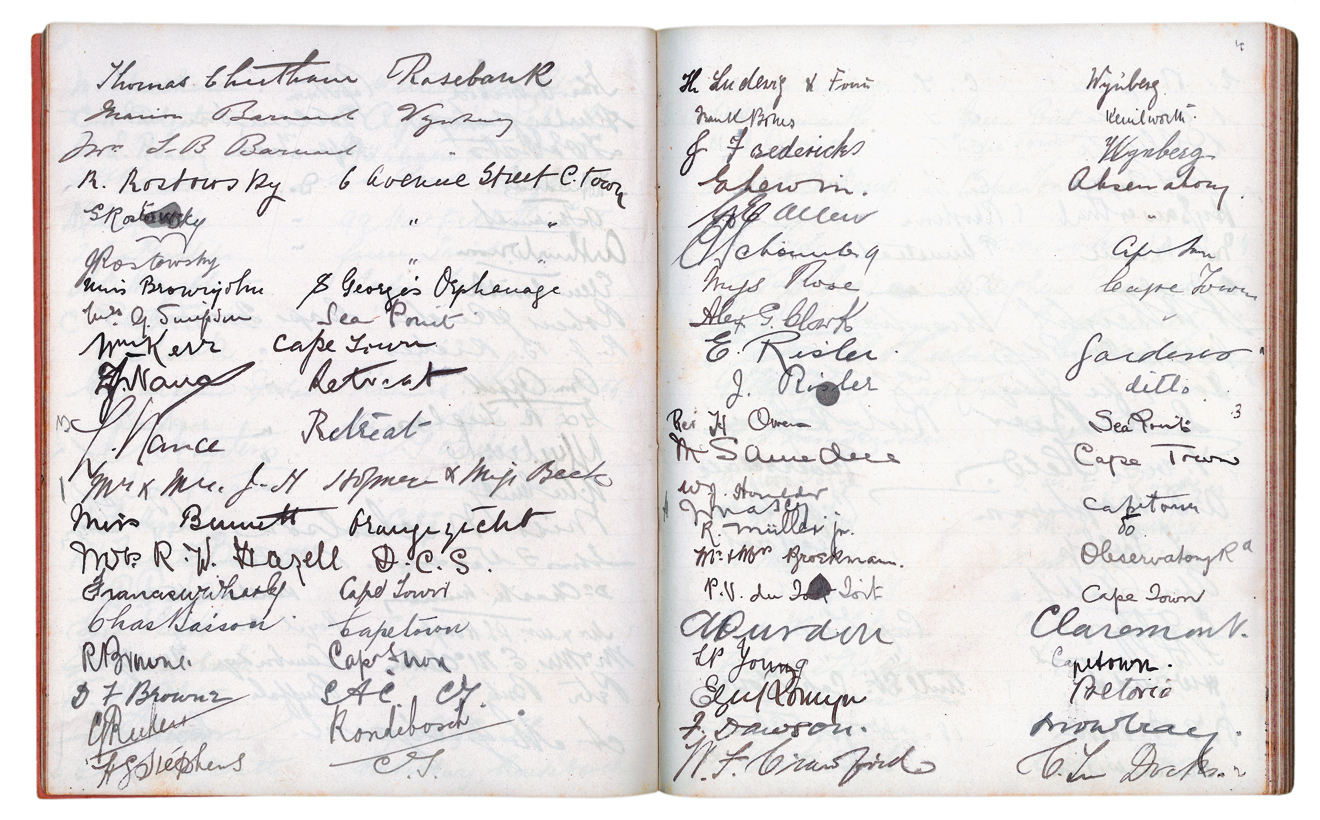 Thomas Cheetham Rosebank
Marion Barnard Wynberg
Jno. S. B Barnard "
R. Rostowsky 6 Avenue Street C. Town
S Rostowsky " "
Rostowsky " "
Miss Brownjohn St George's Orphanage
Mrs G. Simpson Sea Point
Wm Kerr Cape Town
Nance Retreat
J. Nance Retreat
Mr & Mrs. J. H Hofmeyr & Miss Beck
Miss Bennett Oranjezicht
Mrs R. W. Hazell D. C. S.
Francis Wharley Cape Town
Chas Capetown
R Browne. Cape Town
D F Browne C A C. C T.
Rondebosch
A G Stephens C. T.
H Ludewig & Four Wynberg
Frank Bones Kenilworth.
J Frederichs Wynberg
Observatory
Allen "
Schomberg Cape Town
Miss Rose Cape Town
Alex G. Clark "
E. Risler. Gardens
J. Risler ditto
Rev H Owen Sea Point 3
M Cape Town
W. J.
Capetown
R. Müller jr. Do
Mr & Mrs Brockman. Observatory Rd
P. V. du Toit Toit Cape Town
Burdon Claremont.
Young Capetown.
Pretoria
F. Dawson. Mowbray.
W. F. Crawford C. Tn Docks